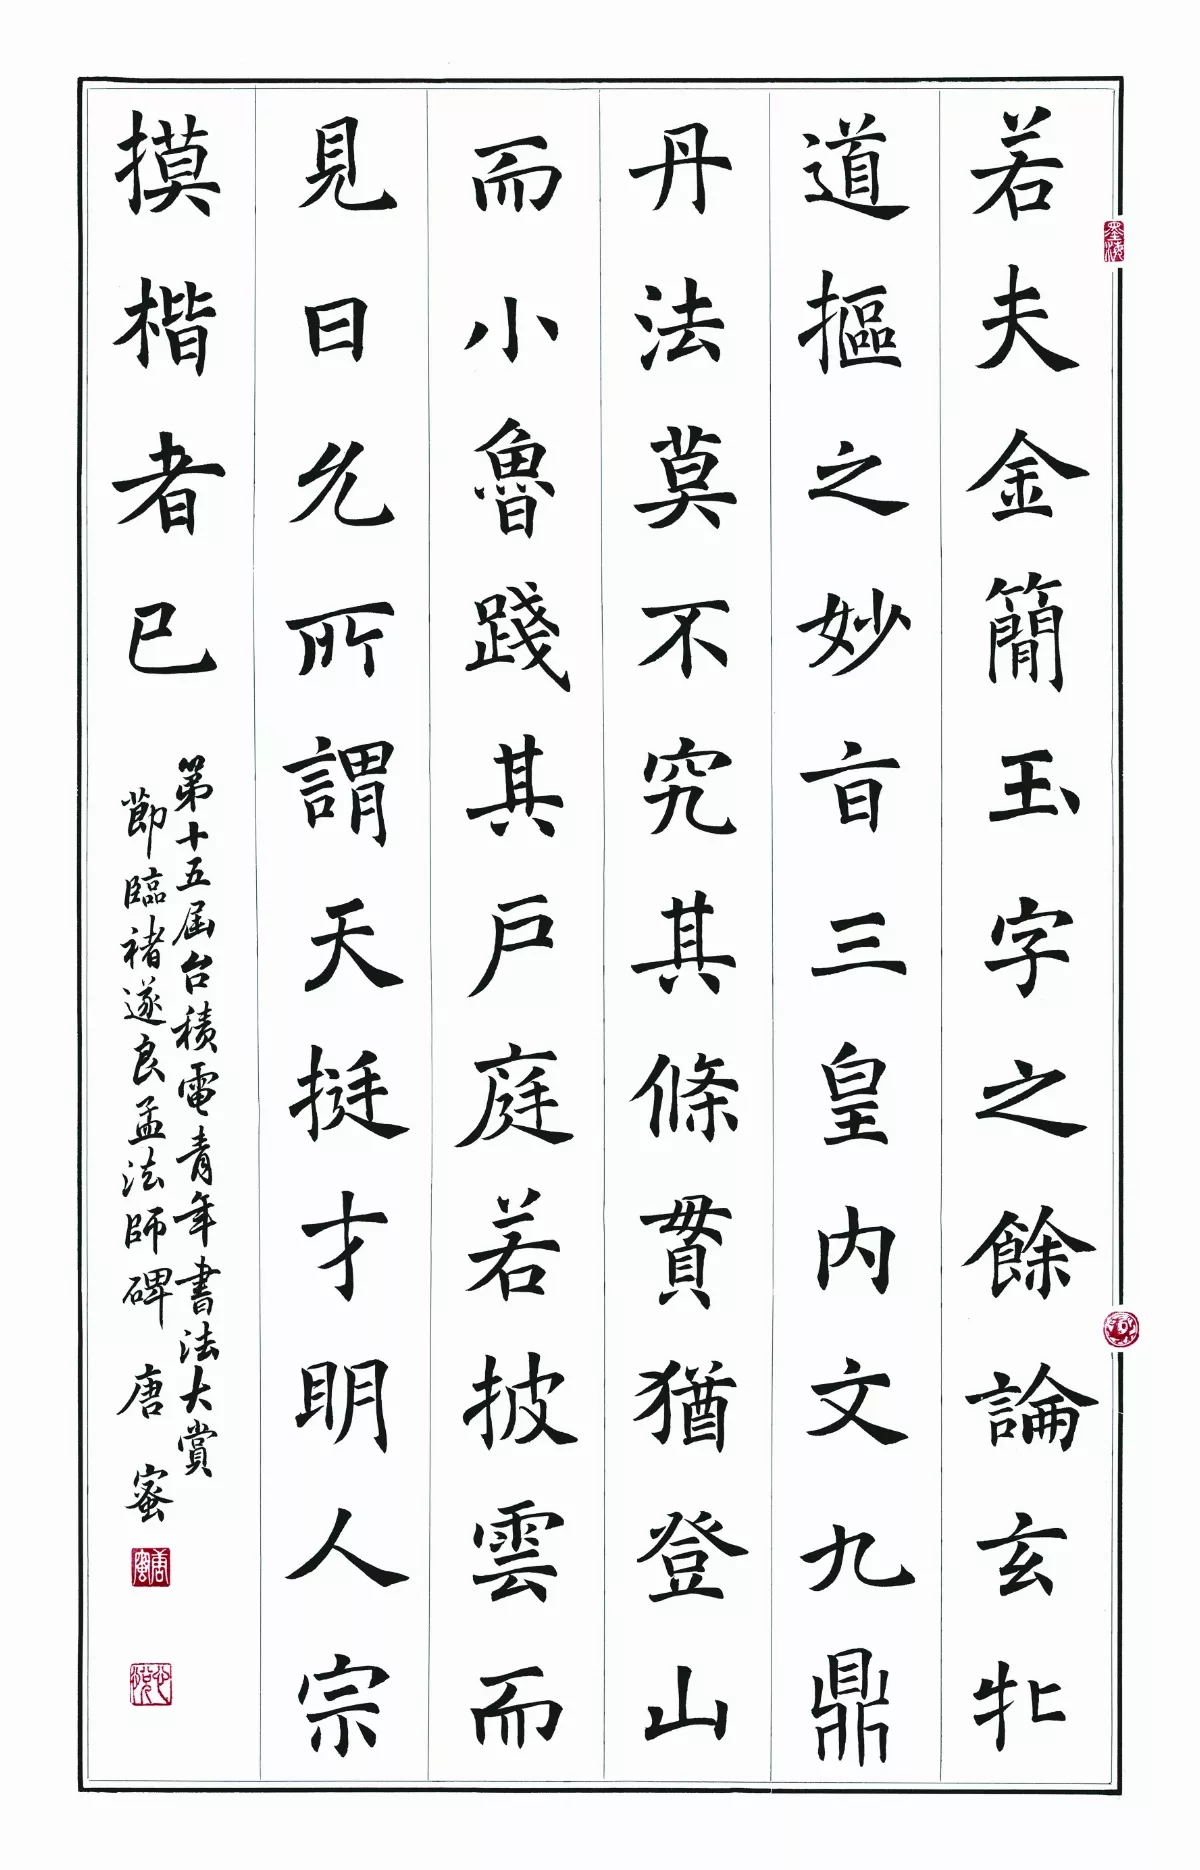 若夫金簡玉字之餘論玄牝
道摳之妙盲三皇内文九鼎
丹法莫不究其條貫猶登山
而小魯踐其戶庭若披雲而
見日允所謂天挺才明人宗
摸楷者已
第十五屆台積電青年書法大賞
節臨褚遂良孟法師碑 唐蜜
墨海
唐蜜